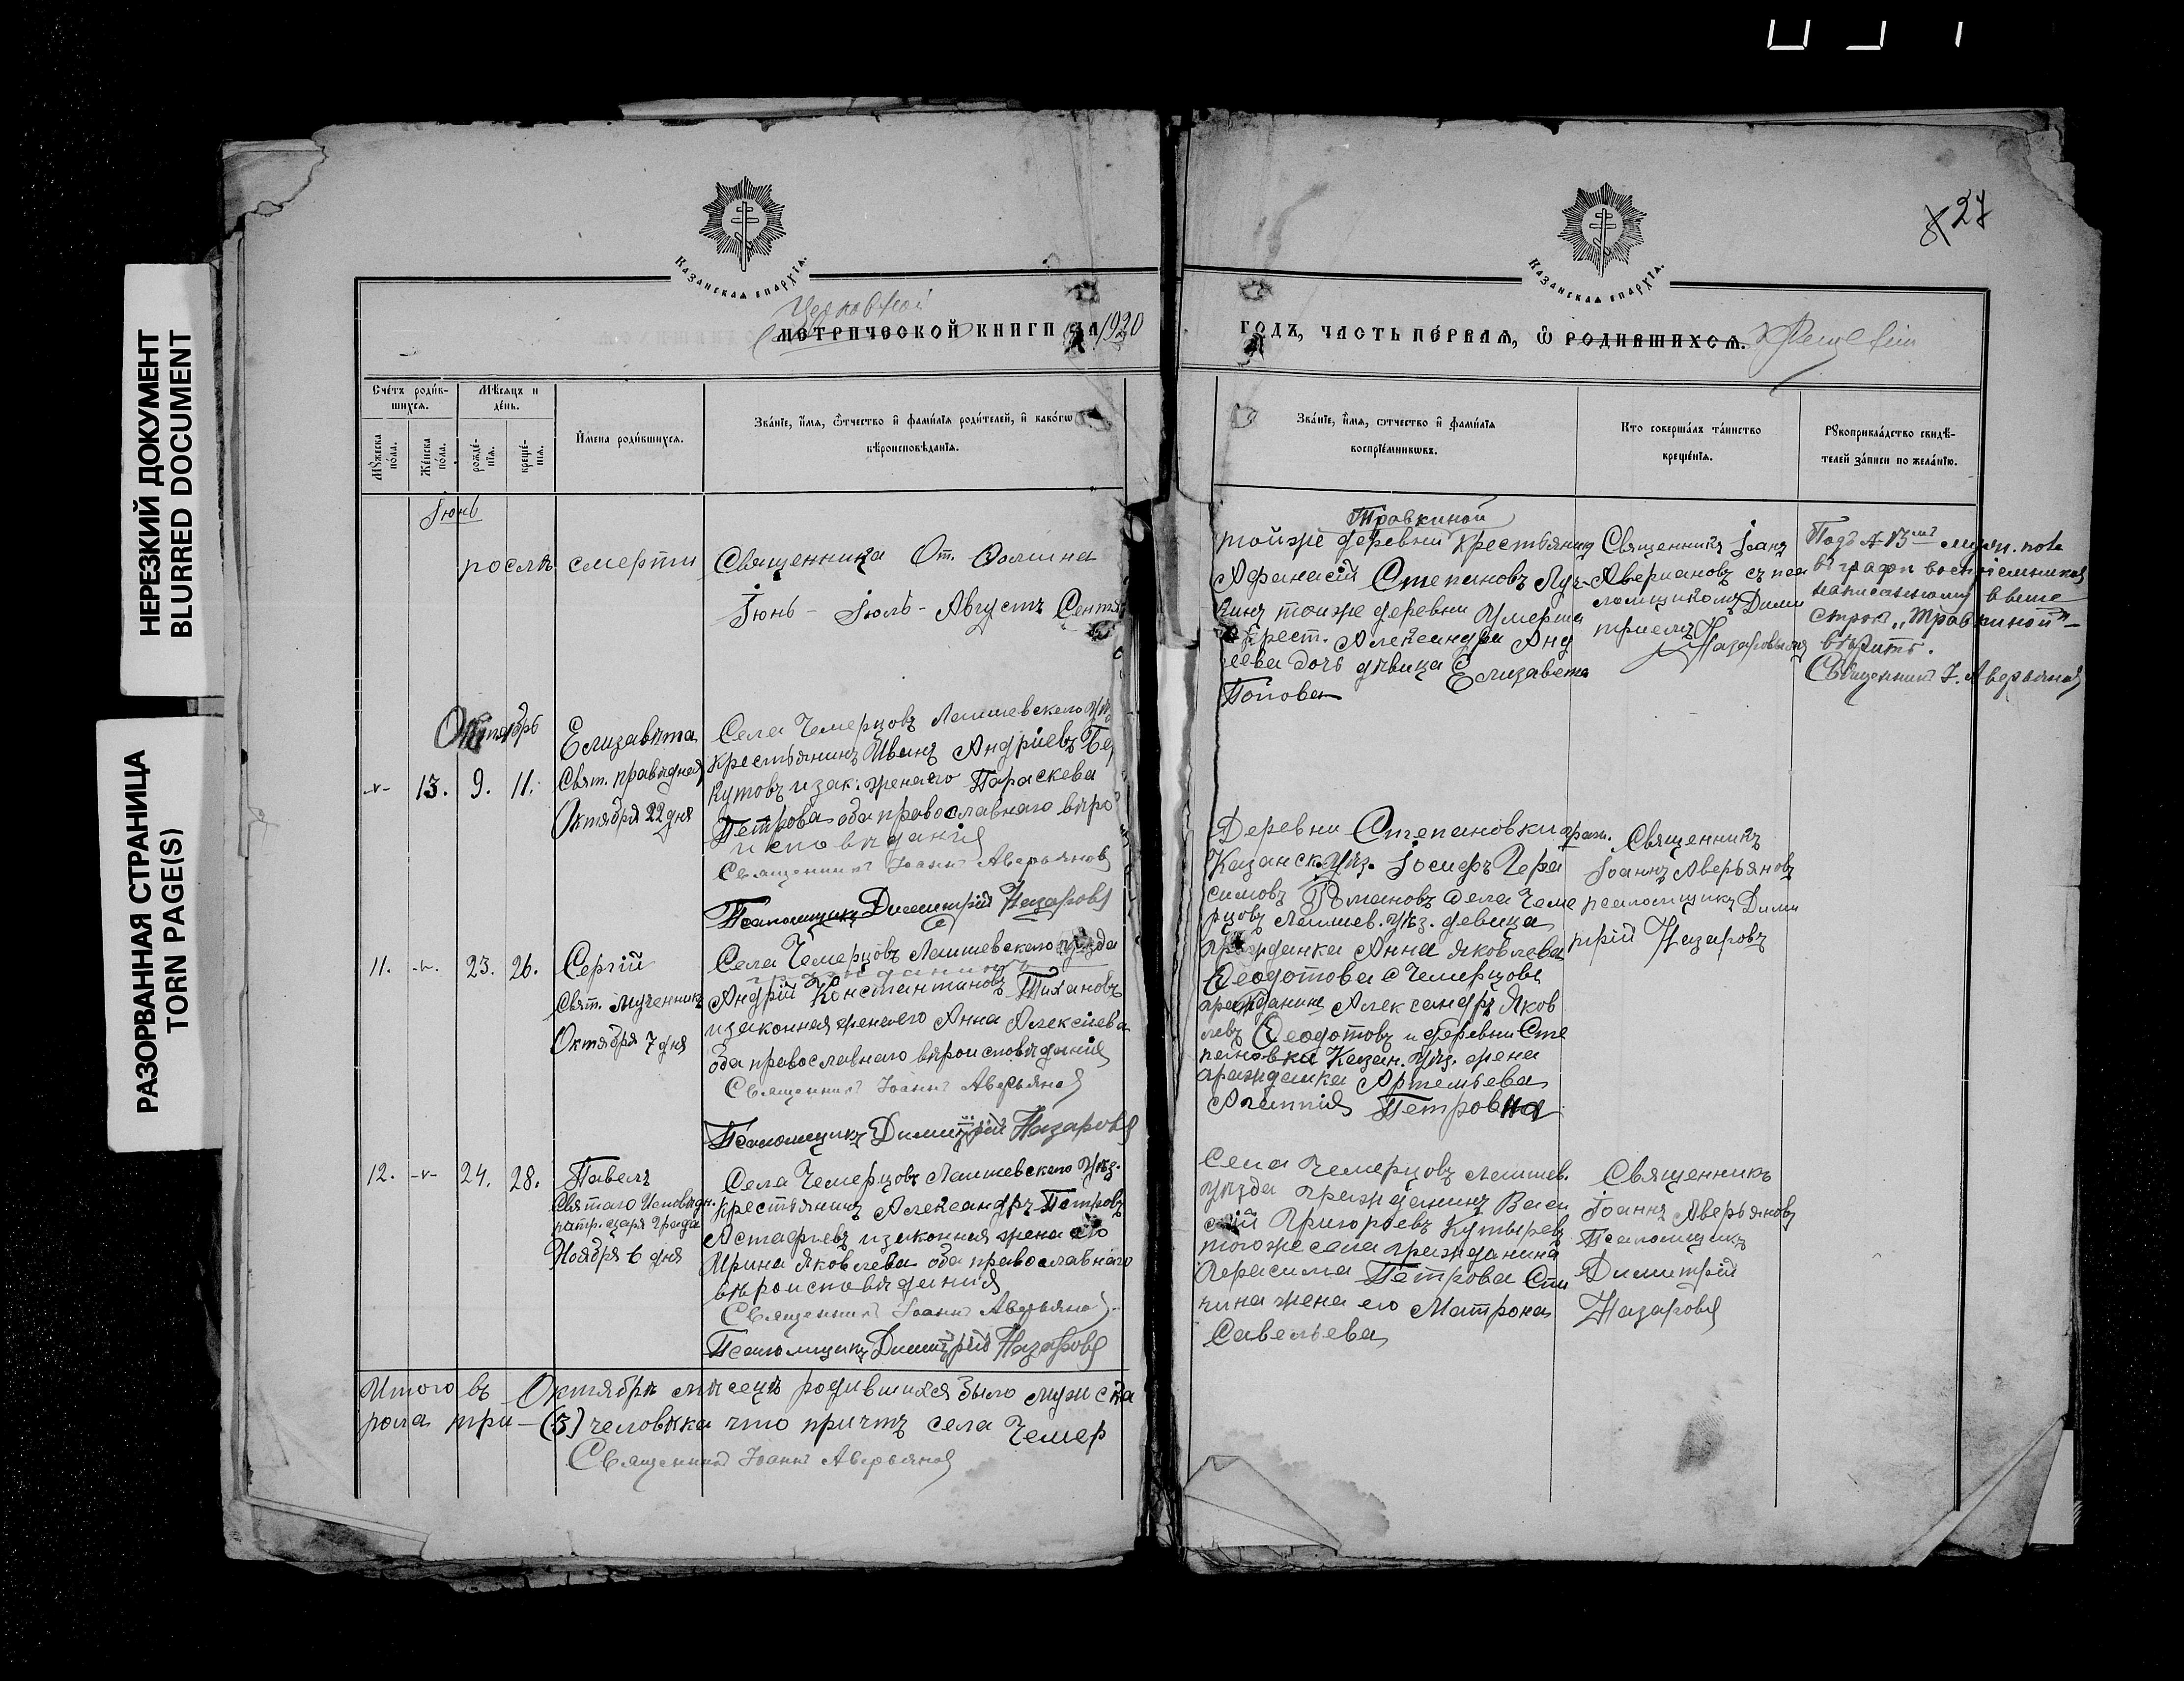 НЕРЕЗКИЙ ДОКУМЕНТ
BLURRED DOCUMENT
РАЗОРВАННАЯ СТРАНИЦА
TORN PAGE(S)
Казанская епархїа.
Церковной
метрической книги за 1920
Счéтъ роди́в-
шихсѧ.
Мѣсѧцъ и
де́нь.
Мꙋ́жеска
по́ла.
Же́нска
по́ла.
рождé-
нїѧ.
крещé-
нїѧ.
И҆мена роди́вшихсѧ.
Зва́нїе, и҆́мѧ, ѻ҆́тчество и҆ фами́лїѧ роди́телей, и҆ како́гѡ
вѣроисповѣ́данїѧ.
Іюнь
послѣ смерти Священника От.
Іюнь - Іюль - Августъ Сентя
Октябрь
-"- 13. 9. 11.
Елизавѣта
Свят. праведная
Октября 22 дня
Села Чемерцовъ Лаишевскаго уѣз
крестьянинъ Иванъ Андріевъ Бе
кутовъ и зак. жена его Параскева
Петрова оба православнаго вѣро
исповѣданія
Священникъ Іоаннъ Аверьяновъ
Псаломщикъ Димитрій Назаровъ
11. -"- 23. 26.
Сергій
Свят. мученникъ
Октября 7 дня
Села Чемерцовъ Лаишевскаго уѣзда
гражданинъ
Андрій Константиновъ Тихановъ
и законная жена его Анна Алексіева
оба православнаго вѣроисповѣданія
Священникъ Іоаннъ Аверьяновъ
Псаломщикъ Димитрій Назаровъ
12. -"- 24. 28.
Павелъ
Святаго Исповѣдн.
патр. Царя града
Ноября 6 дня
Села Чемерцовъ Лаишевскаго уѣз.
крестьянинъ Александръ Петровъ
Астафіевъ и законная жена его
Ирина Яковлева оба православнаго
вѣроисповѣданія
Священникъ Іоаннъ Аверьяновъ
Псаломщикъ Димитрій Назаровъ
Итого въ Октябрѣ мѣсецѣ родившихся было мужска
пола три - (3) человѣка что причтъ села Чемер
Священникъ Іоаннъ Аверьяновъ
27
Казанская епархїа.
го́дъ, ча́сть пе́рваѧ, ѡ҆ роди́вшихсѧ.
Зва́нїе, и҆́мѧ, ѻ҆́тчество и҆ фами́лїѧ
воспрїе́мникѡвъ.
Кто̀ соверша́лъ та́инство
креще́нїѧ.
Рꙋкоприкла́дство свидѣ́-
телей за́писи по жела́нїю.
Травкиной
тойже деревни крестьянинъ
Афанасій Степановъ Луч-
кинъ тоиже деревни умерша
крест. Александра Анд
реева дочь дѣвица Елизавета
Попова
Священникъ Іоанъ
Аверіановъ съ пса
ломщикомъ Дими
тріемъ Назаровымъ
въ графѣ воспріемниковъ
написанному выше
строк. „Травкиной"
вѣрить.
Священникъ І. Аверьяновъ
Деревни Степановки граж.
Казанск. уѣз. Іосифъ Гера
симовъ Романовъ Села Чеме
рцовъ Лаишев. уѣз. девица
гражданка Анна Яковлева
Ѳеодотова с Чемерцовъ
гражданинъ Александръ Яков
левъ Ѳеодотовъ и деревни Сте
пановка Казан. уѣз. жена
гражданка Артемьева
Агаппія Петровна
Священникъ
Іоаннъ Аверьяновъ
псаломщикъ Дими
трій Назаровъ
Села Чемерцовъ Лаишев.
уѣзда гражданинъ Васи
лій Григорьевъ Кутыревъ
тогоже села гражданина
Герасима Петрова Спи
чина жена его Матрона
Савельева
Священникъ
Іоаннъ Аверьяновъ
Псаломщикъ
Димитрій
Назаровъ